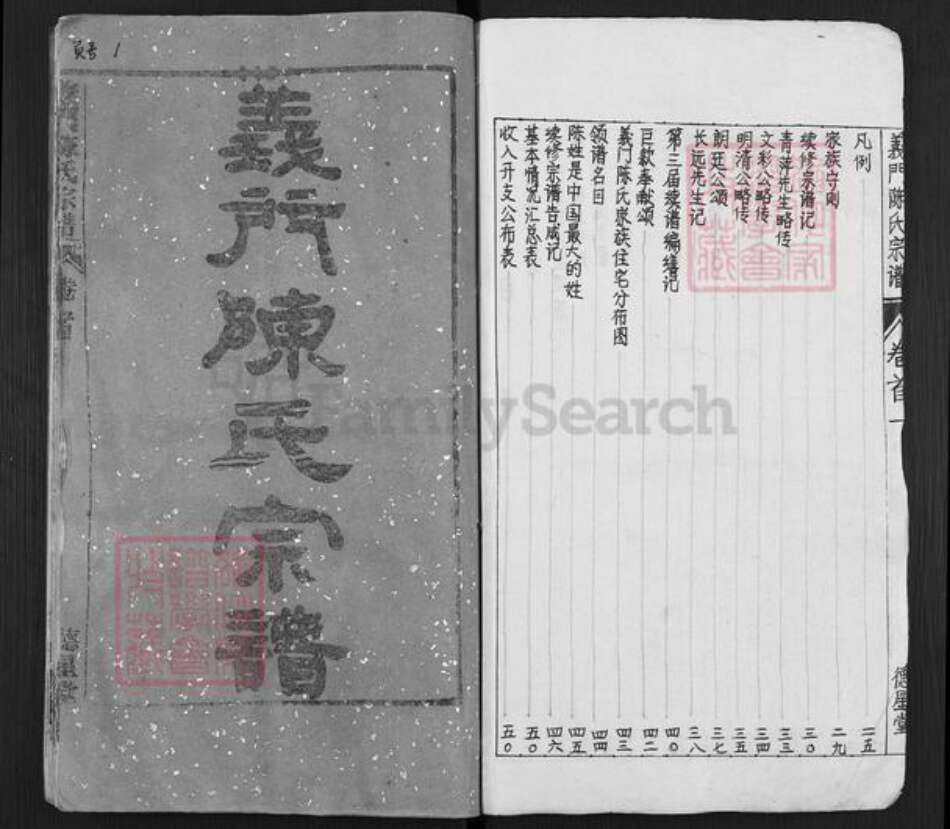 义門陳氏宗譜
德星堂
義門陳氏宗谱
卷首一
德星堂
凡例 二五
家族守则 二九
续修宗谱记 三0
青萍先生略传 三三
文彩公略传 三四
明清公略传 三五
朗廷公颂 三七
长远先生记 三八
第三届续谱编缮记 四0
巨款奉献颂 四二
義门陈氏家族住宅分布图 四三
领谱名目 四四
陈姓是中国最大的姓 四五
续修宗谱告成记 四六
基本情况汇总表 五0
收入开支公布表 五0
FamilySearch